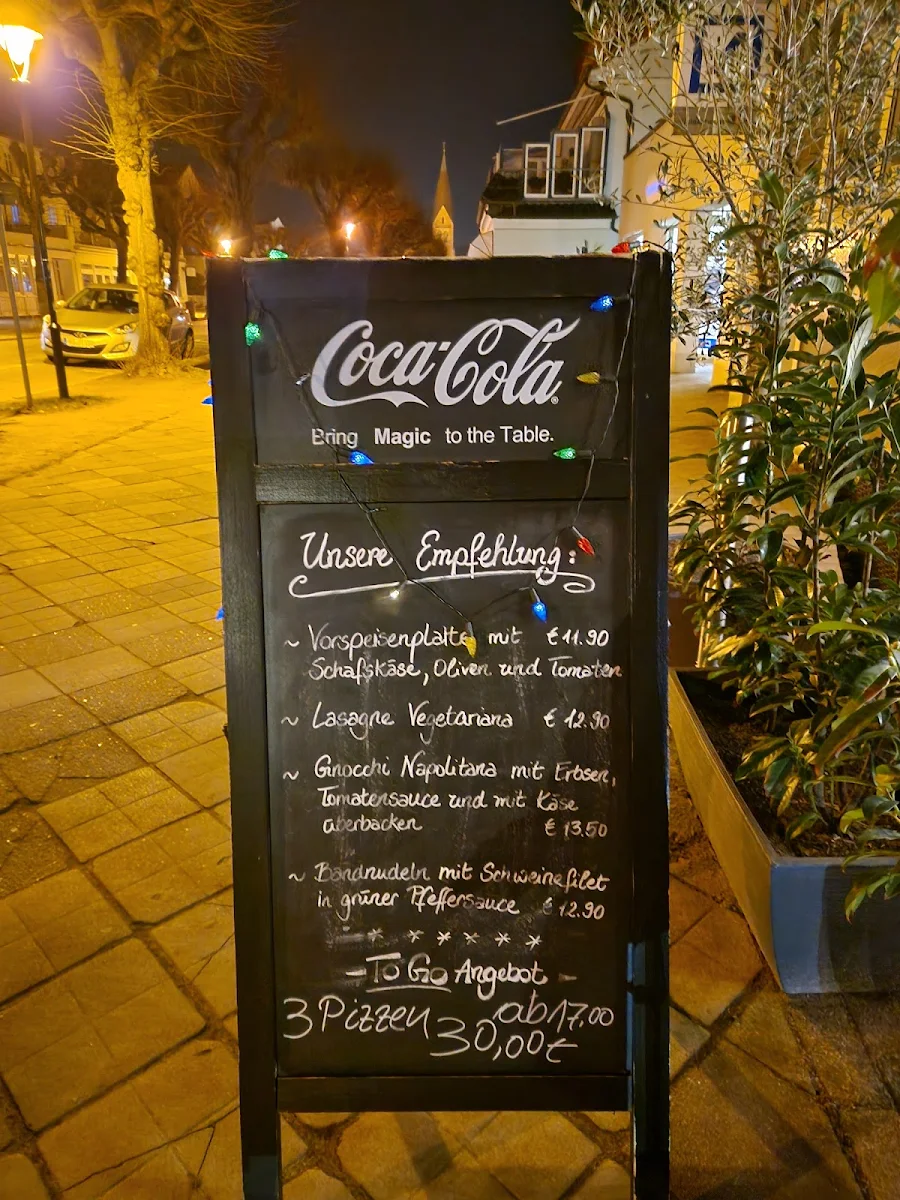 Coca-Cola
Bring Magic to the Table.
Unsere Empfehlung:
~ Vorspeisenplatte mit € 11.90
Schafskäse, Oliven und Tomaten
~ Lasagne Vegetariana € 12.90
~ Gnocchi Napolitana mit Erbsen,
Tomatensauce und mit Käse
überbacken € 13.50
~ Bandnudeln mit Schweinefilet
in grüner Pfeffersauce € 12.90
* * * * * *
- To Go Angebot -
3 Pizzen ab 17.00
30,00€